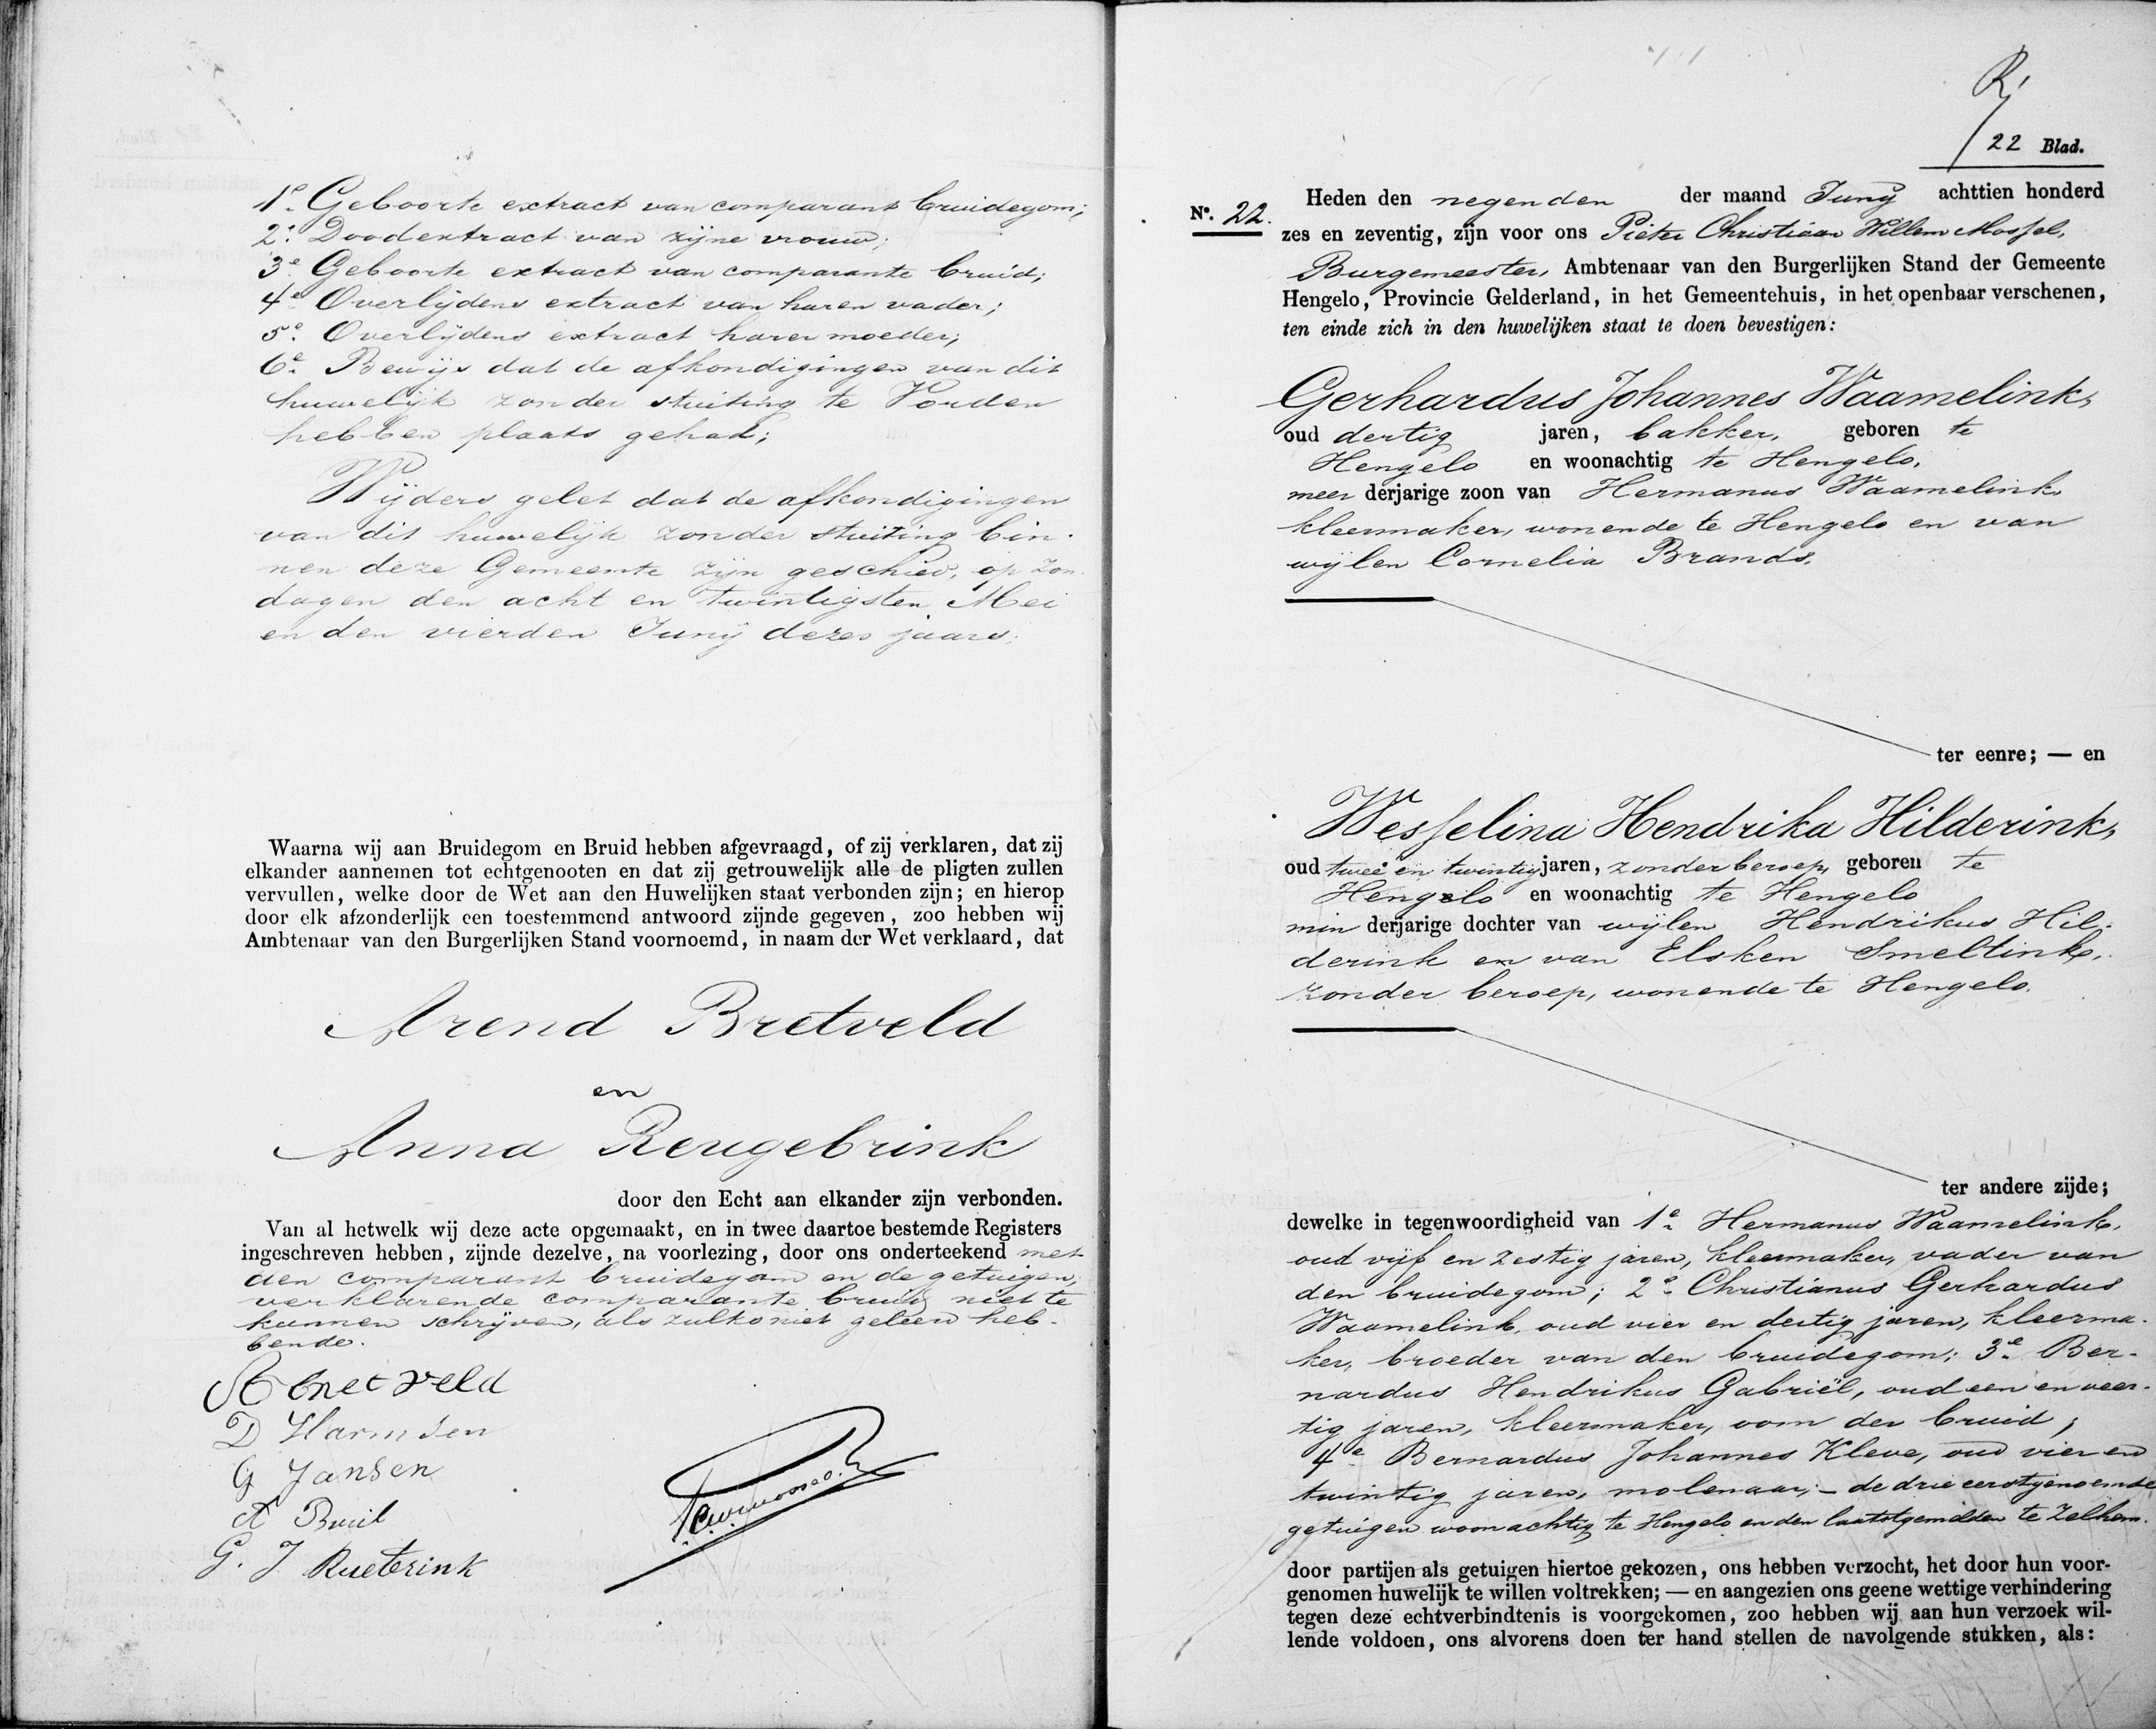 1e. Geboorte extract van comparant bruidegom;
2e. Doodextract van zijne vrouw;
3e. Geboorte extract van comparante bruid;
4e. Overlijdens extract van haren vader;
5e. Overlijdens extract harer moeder;
6e. Bewijs dat de afkondigingen van dit
huwelijk zonder stuiting te Vorden
hebben plaats gehad;
Wijders gelet dat de afkondigingen
van dit huwelijk zonder stuiting bin-
nen deze Gemeente zijn geschied, op Zon-
dagen den acht en twintigsten Mei
en den vierden Junij dezes jaars;
Waarna wij aan Bruidegom en Bruid hebben afgevraagd, of zij verklaren, dat zij
elkander aannemen tot echtgenooten en dat zij getrouwelijk alle de pligten zullen
vervullen, welke door de Wet aan den Huwelijken staat verbonden zijn; en hierop
door elk afzonderlijk een toestemmend antwoord zijnde gegeven, zoo hebben wij
Ambtenaar van den Burgerlijken Stand voornoemd, in naam der Wet verklaard, dat
Arend Bretveld
en
Anna Reugebrink
door den Echt aan elkander zijn verbonden.
Van al hetwelk wij deze acte opgemaakt, en in twee daartoe bestemde Registers
ingeschreven hebben, zijnde dezelve, na voorlezing, door ons onderteekend met
den comparant bruidegom en de getuigen,
verklarende comparante bruid niet te
kunnen schrijven, als zulks niet geleerd heb-
bende.
A bretveld
D Harmsen
G Jansen
A Buil
G. J Rueterink
22 Blad.
No. 22.
Heden den negenden der maand Junij achttien honderd
zes en zeventig, zijn voor ons Pieter Christiaan Willem Mossel,
Burgemeester, Ambtenaar van den Burgerlijken Stand der Gemeente
Hengelo, Provincie Gelderland, in het Gemeentehuis, in het openbaar verschenen,
ten einde zich in den huwelijken staat te doen bevestigen:
Gerhardus Johannes Waamelink,
oud dertig jaren, bakker, geboren te
Hengelo en woonachtig te Hengelo,
meer derjarige zoon van Hermanus Waamelink
kleermaker, wonende te Hengelo en van
wijlen Cornelia Brands,
ter eenre; — en
Wesselina Hendrika Hilderink,
oud twee en twintig jaren, zonder beroep, geboren te
Hengelo en woonachtig te Hengelo
min derjarige dochter van wijlen Hendrikus Hil-
derink en van Elsken Smeltink,
zonder beroep, wonende te Hengelo.
ter andere zijde;
dewelke in tegenwoordigheid van 1e. Hermanus Waamelink,
oud vijf en zestig jaren, kleermaker, vader van
den bruidegom; 2e. Christianus Gerhardus
Waamelink, oud vier en dertig jaren, kleerma-
ker, broeder van den bruidegom; 3e. Ber-
nardus Hendrikus Gabriël, oud een en veer-
tig jaren, kleermaker, oom der bruid;
4e Bernardus Johannes Kleve, oud vier en
twintig jaren, molenaar; - de drie eerstgenoemde
getuigen woonachtig te Hengelo en den laatstgemelden te Zelhem.
door partijen als getuigen hiertoe gekozen, ons hebben verzocht, het door hun voor-
genomen huwelijk te willen voltrekken; — en aangezien ons geene wettige verhindering
tegen deze echtverbindtenis is voorgekomen, zoo hebben wij aan hun verzoek wil-
lende voldoen, ons alvorens doen ter hand stellen de navolgende stukken, als: